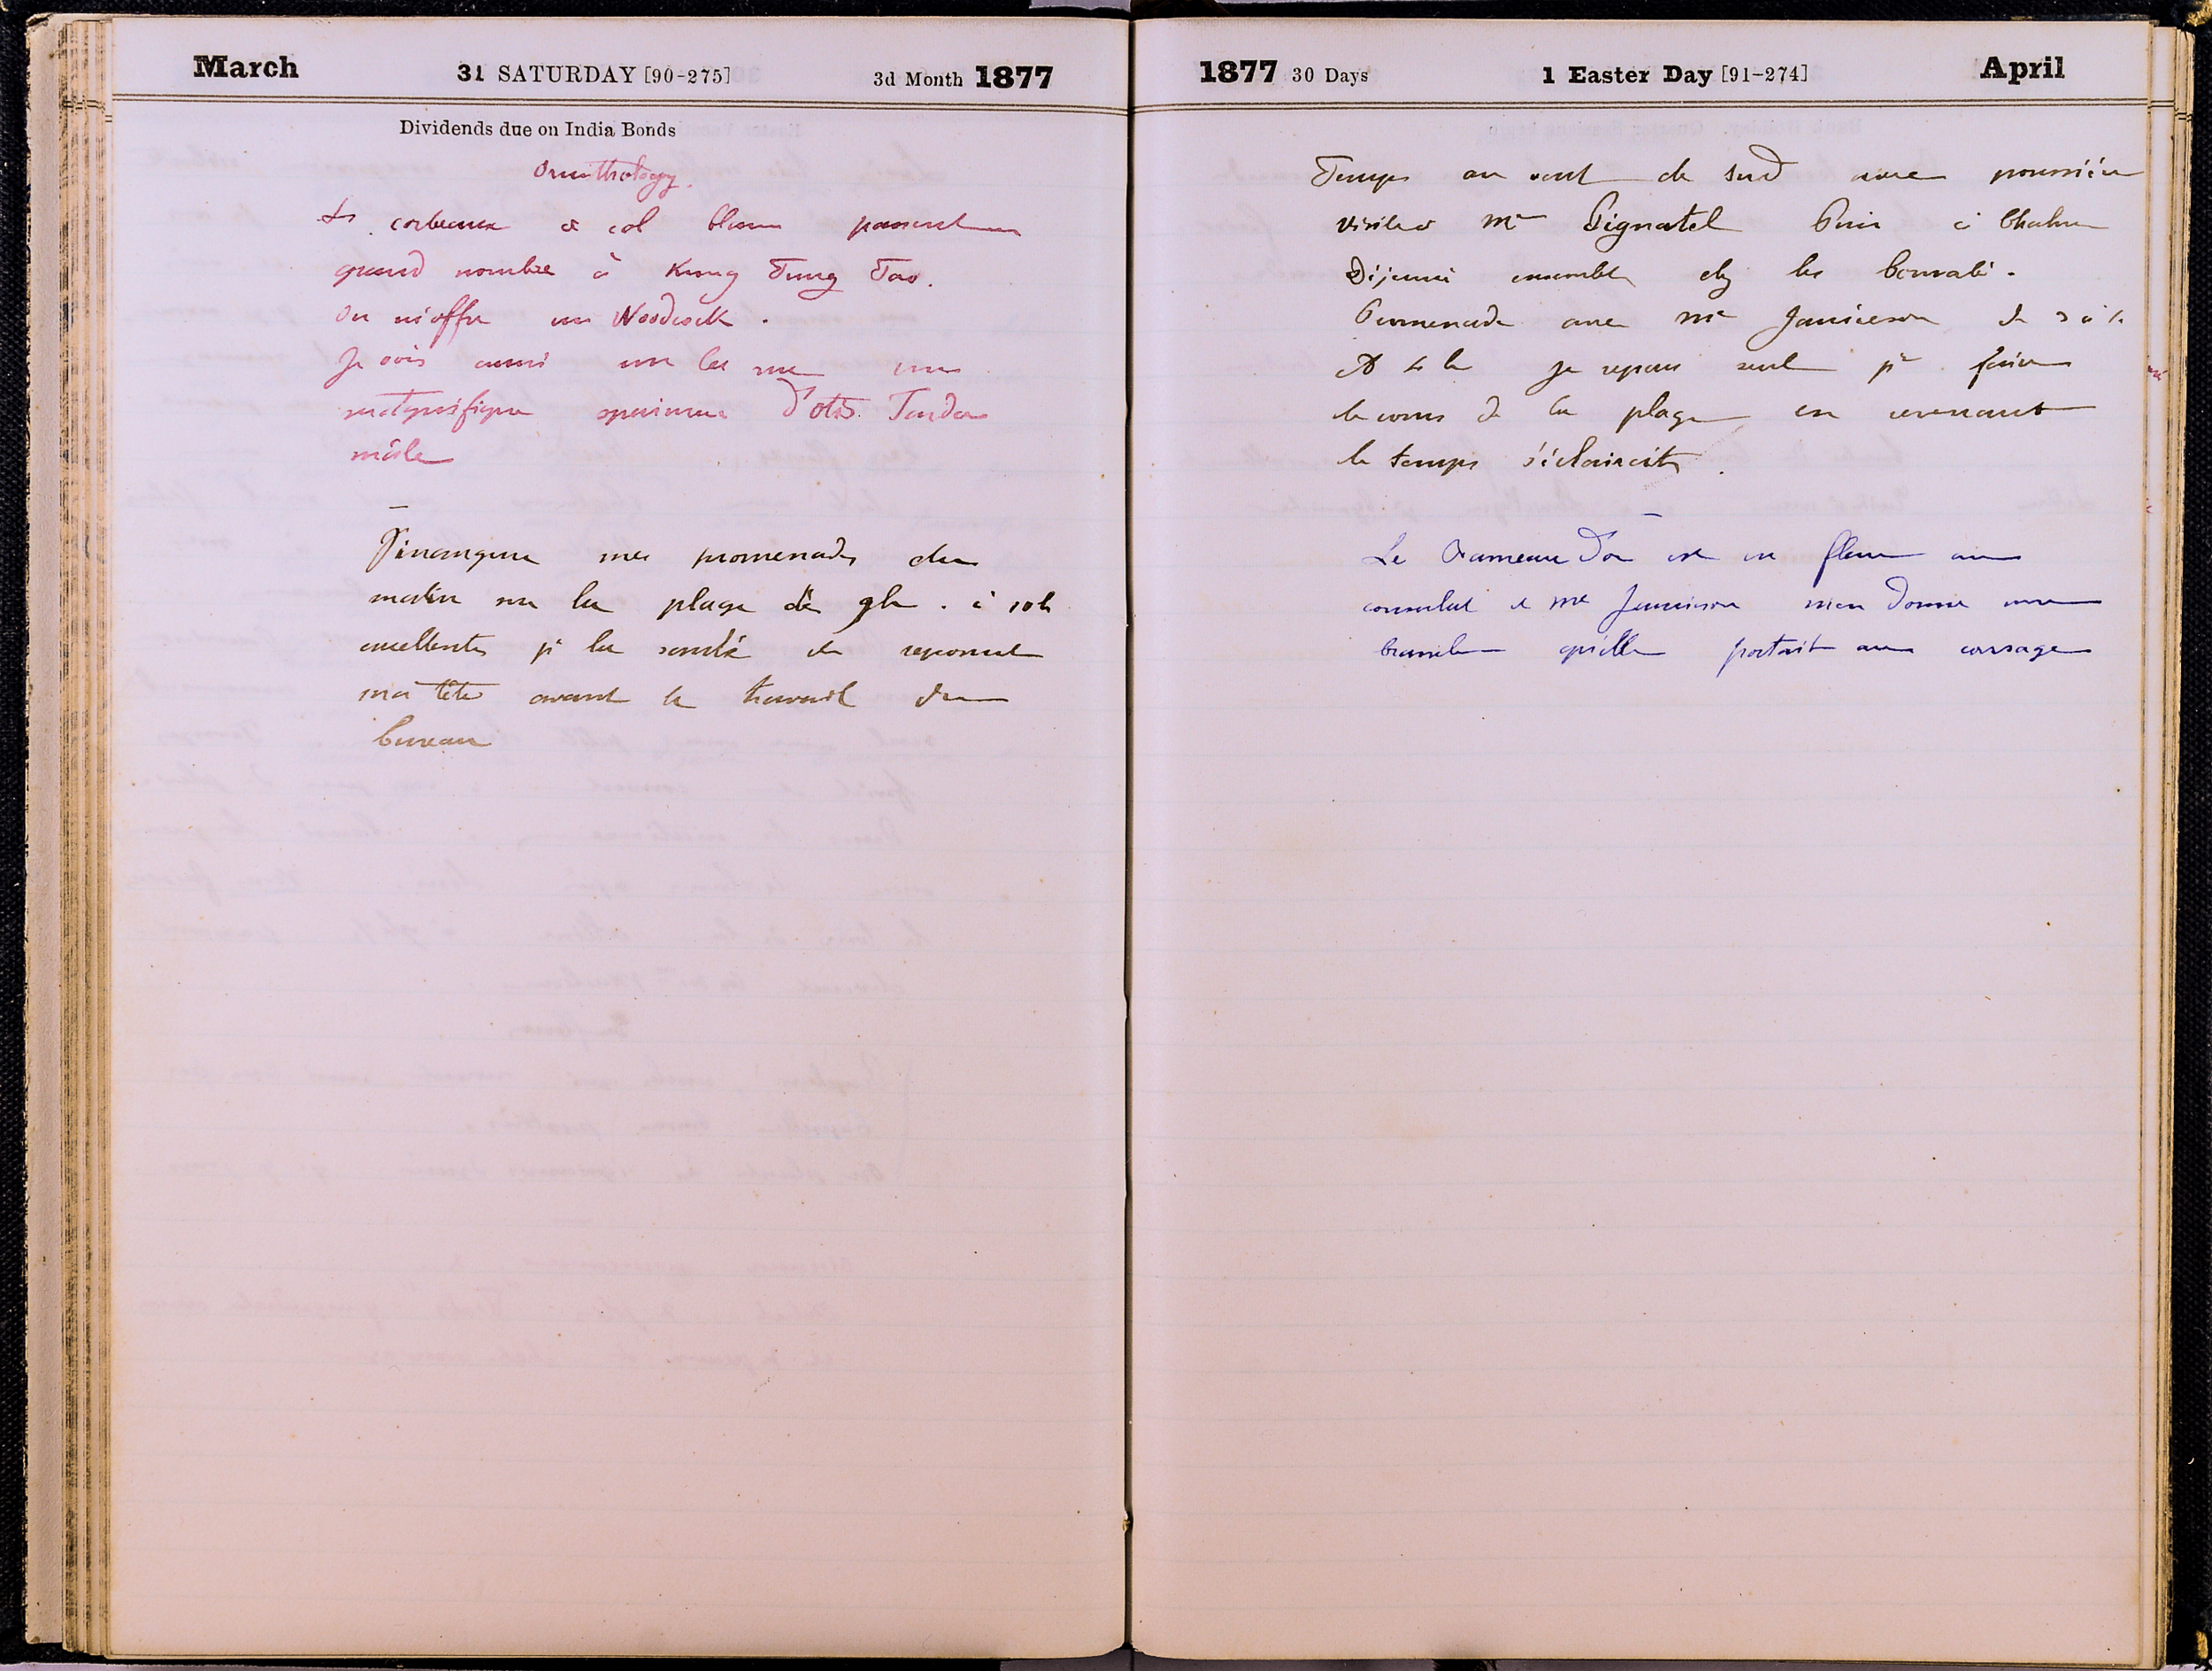 March 31 SATURDAY [90-275] 3d Month 1877
Dividends due on India Bonds
Ornithology.
Ls corbeaux à col blanc passent en
grand nombre à Kung Tung Tao.
On m'offre un Woodcock.
Je vois aussi sur la rue un
magnifique specimen d'otis Tarda
mâle
J'inaugure mes promenades du
matin sur la plage de 9h. à 10h
excellentes pr la santé et reposent
ma tête avant le travail du
bureau
1877 30 Days 1 Easter Day [91-274] April
Temps au vent de sud avec poussière
visite à Mr Pignatel
Déjeuné ensemble chez les
Promenade avec Mr Jamieson de 3 à 4
A 4 h je repars seul pr faire
le cours de la plage en revenant
le temps s'éclaircit.
Le Rameau d'or est en fleur au
consulat et Me Jamieson m'en donne une
branche qu'elle portait au corsage